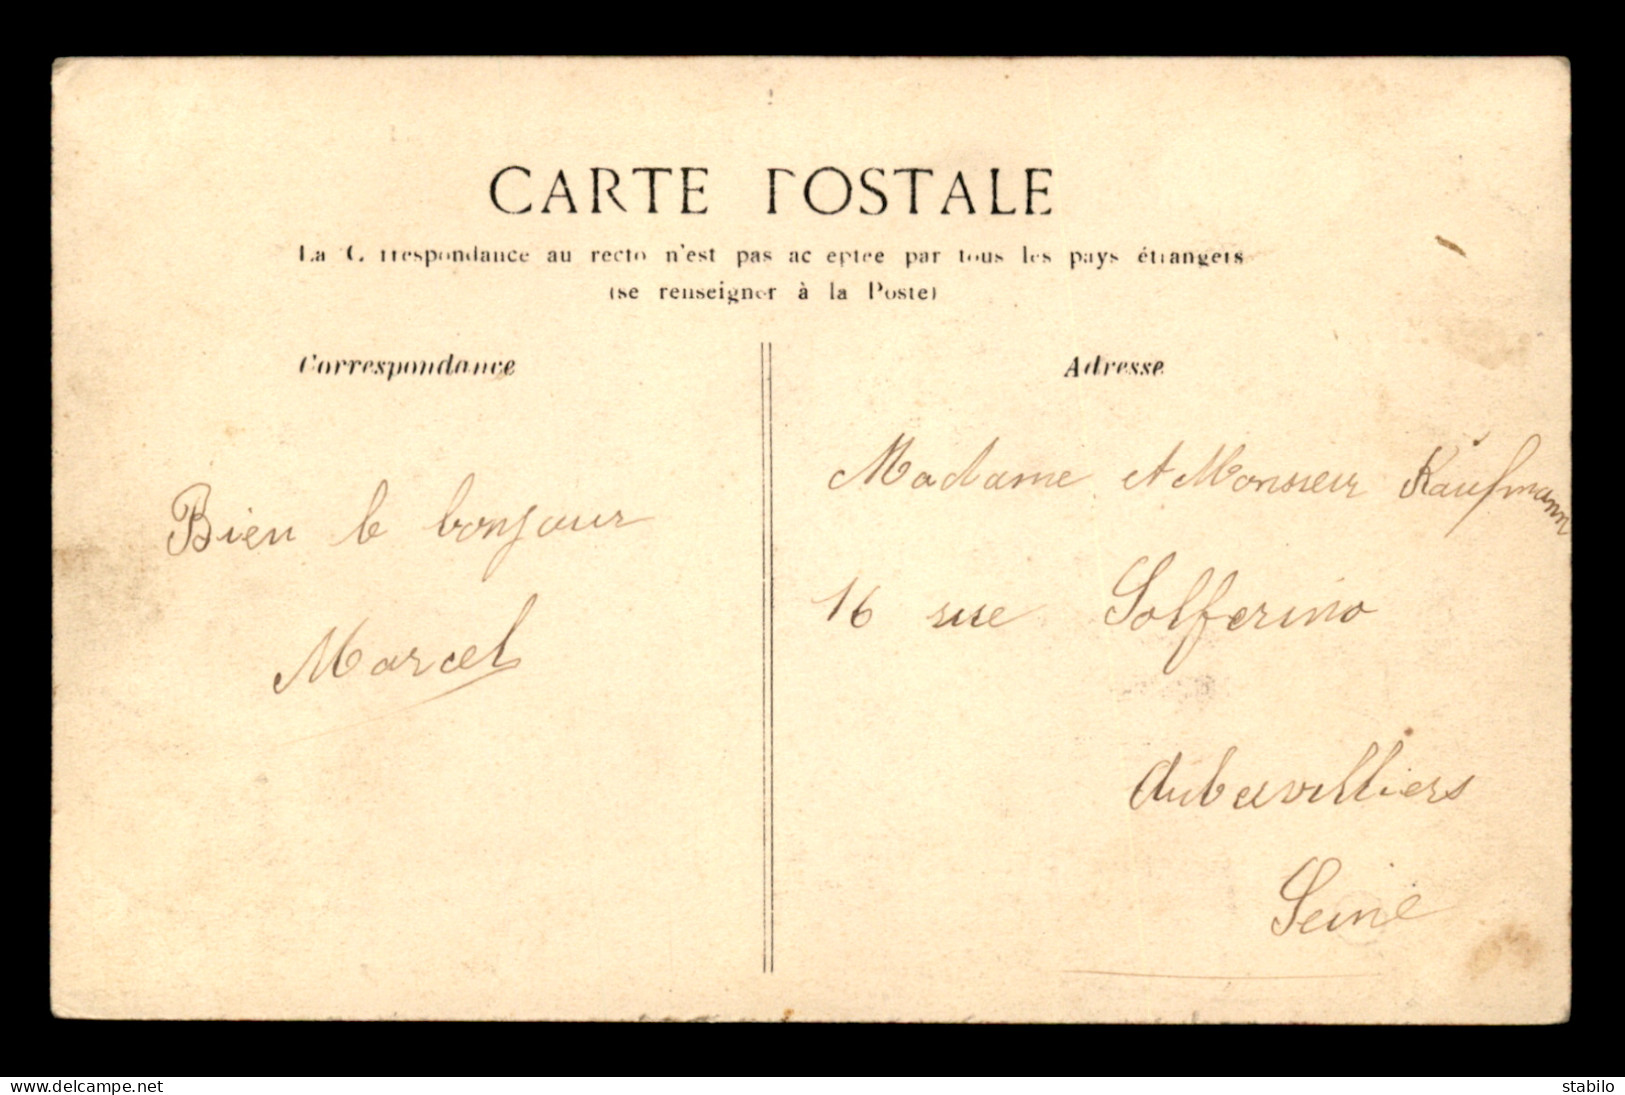 CARTE POSTALE
La Correspondance au recto n'est pas acceptée par tous les pays étrangers
(se renseigner à la Poste)
Correspondance
Bien le bonjour
Marcel
Adresse
Madame et Monsieur Kaufmann
16 rue Solferino
Aubervilliers
Seine
www.delcampe.net
stabilo